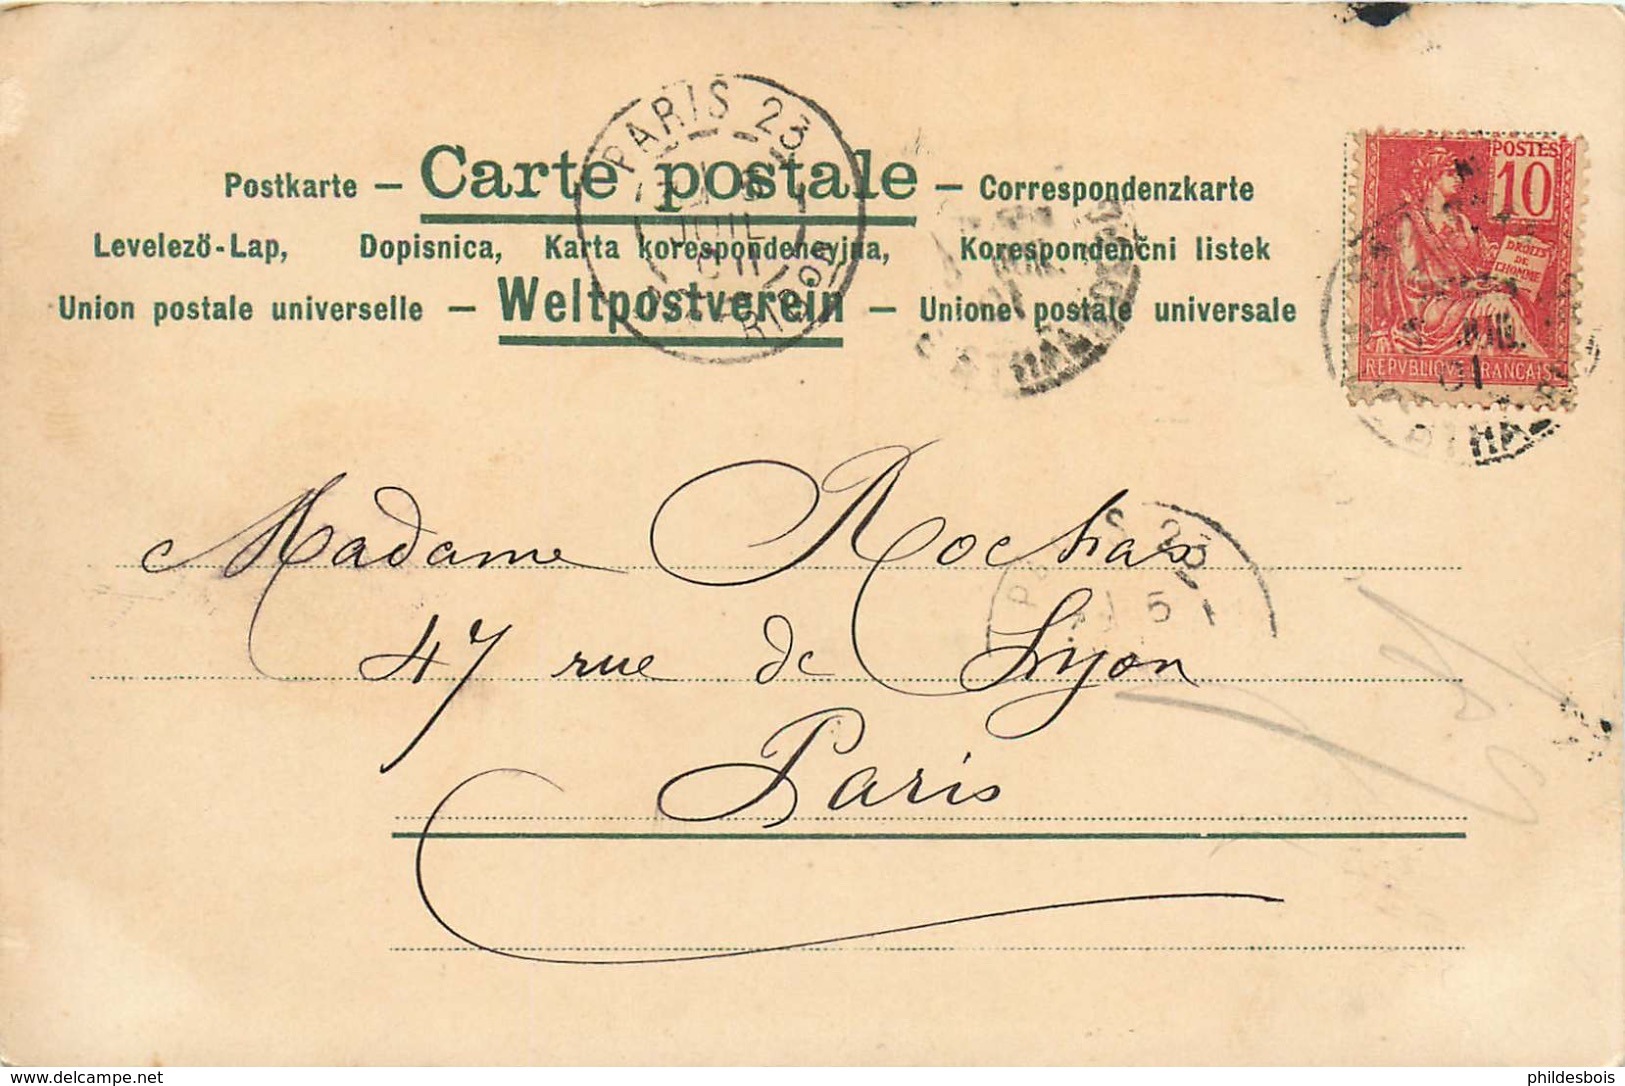 PARIS 23
JUIL
01
R. RIPON
Postkarte – Carte postale – Correspondenzkarte
Levelező-Lap, Dopisnica, Karta korespondencyjna, Korespondenčni listek
Union postale universelle – Weltpostverein – Unione postale universale
POSTES
10
DROITS
DE
L'HOMME
REPVBLIQUE FRANÇAISE
JUIL.
01
S 23
5
Madame Rochas
47 rue de Lyon
Paris
delcampe.net
phildesbois